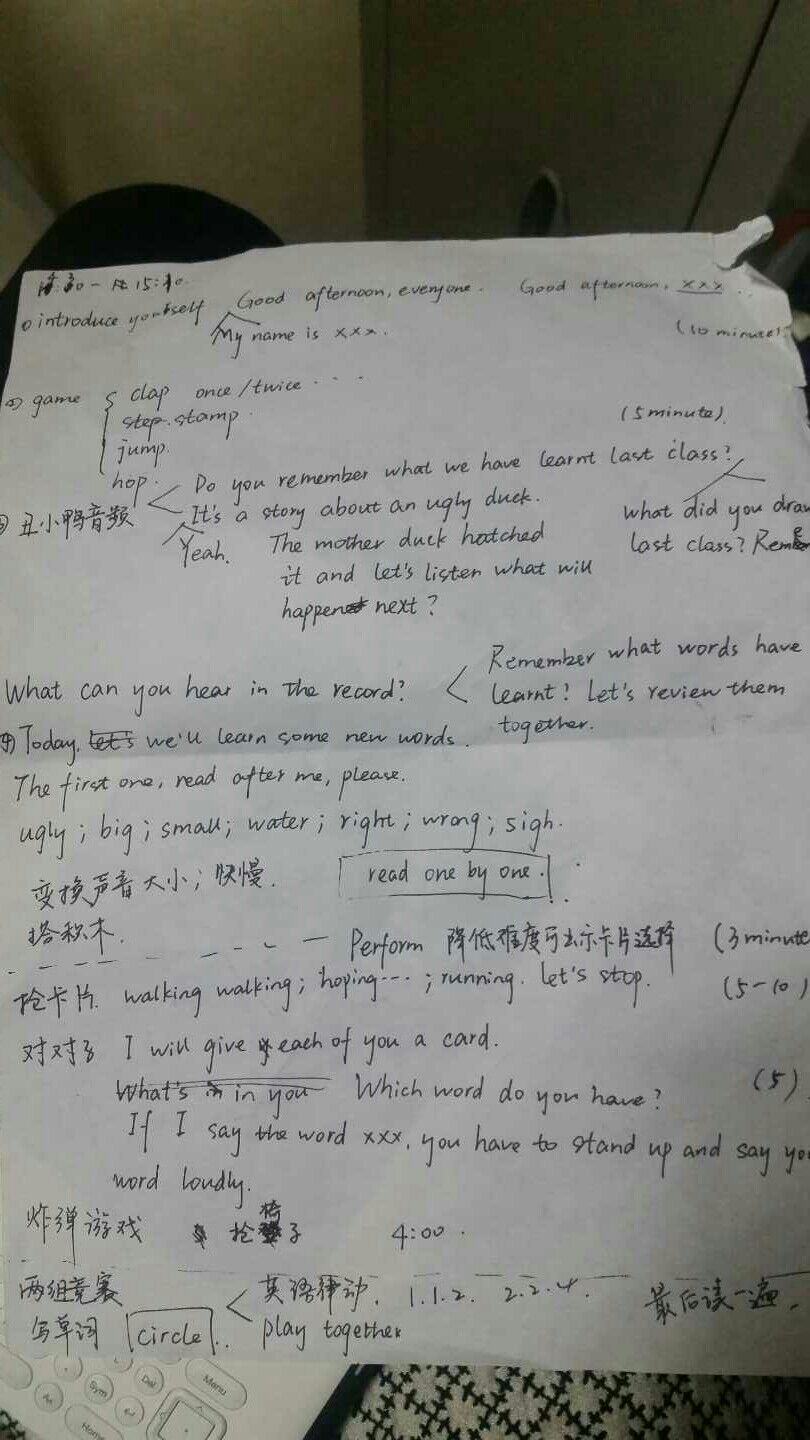 15:10.
introduce yourself Good afternoon, everyone. Good afternoon, xxx ..
My name is xxx. (10 minute)
② game clap once/twice ....
step. stamp. (5 minute).
jump.
hop.
Do you remember what we have learnt last class?
③ 丑小鸭音频 It's a story about an ugly duck. What did you draw
Yeah. The mother duck hatched last class?
it and let's listen what will
happen next?
Remember what words have
What can you hear in the record? learnt? Let's review them
together.
④ Today, we'll learn some new words.
The first one, read after me, please.
ugly; big; small; water; right; wrong; sigh.
变换声音大小; 快慢. read one by one.
搭积木. Perform 降低难度可出示卡片选择 (3 minute
抢卡片. walking walking; hoping...; running. let's stop. (5-10)
对对子 I will give each of you a card.
What's in you Which word do you have? (5)
If I say the word xxx, you have to stand up and say you
word loudly.
炸弹游戏 抢椅子 4:00.
两组竞赛 英语律动. 1.1.2. 2.2.4. 最后读一遍.
写单词 circle.. play together
Menu
Del
Sym
Home
Alt